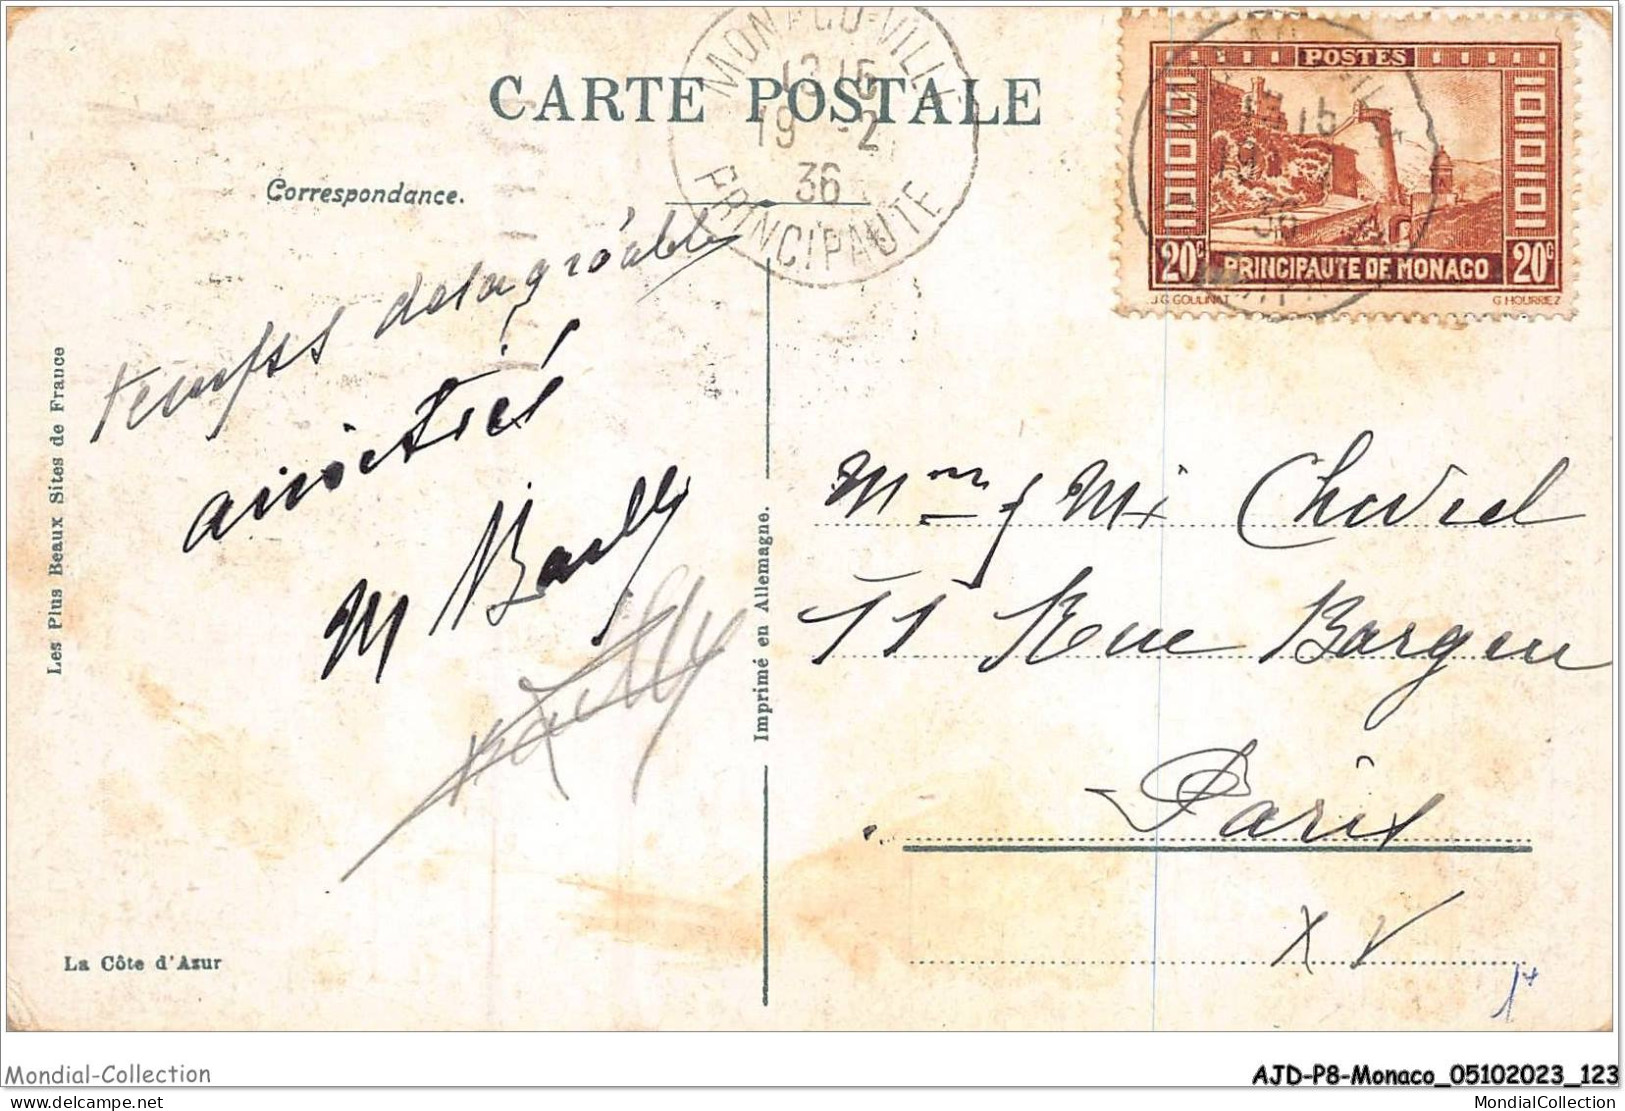 CARTE POSTALE
MONACO-VILLE
13 15
19 -2
36
PRINCIPAUTE
POSTES
20c PRINCIPAUTE DE MONACO 20c
J.G GOULINAT G HOURRIEZ
Correspondance.
temps désagréable
amitiés
M Bailly
Bailly
Les Plus Beaux Sites de France
Imprimé en Allemagne.
La Côte d'Azur
Mme
11 Rue Bargue
Paris
XV
Mondial-Collection
AJD-P8-Monaco_05102023_123
delcampe.net
MondialCollection